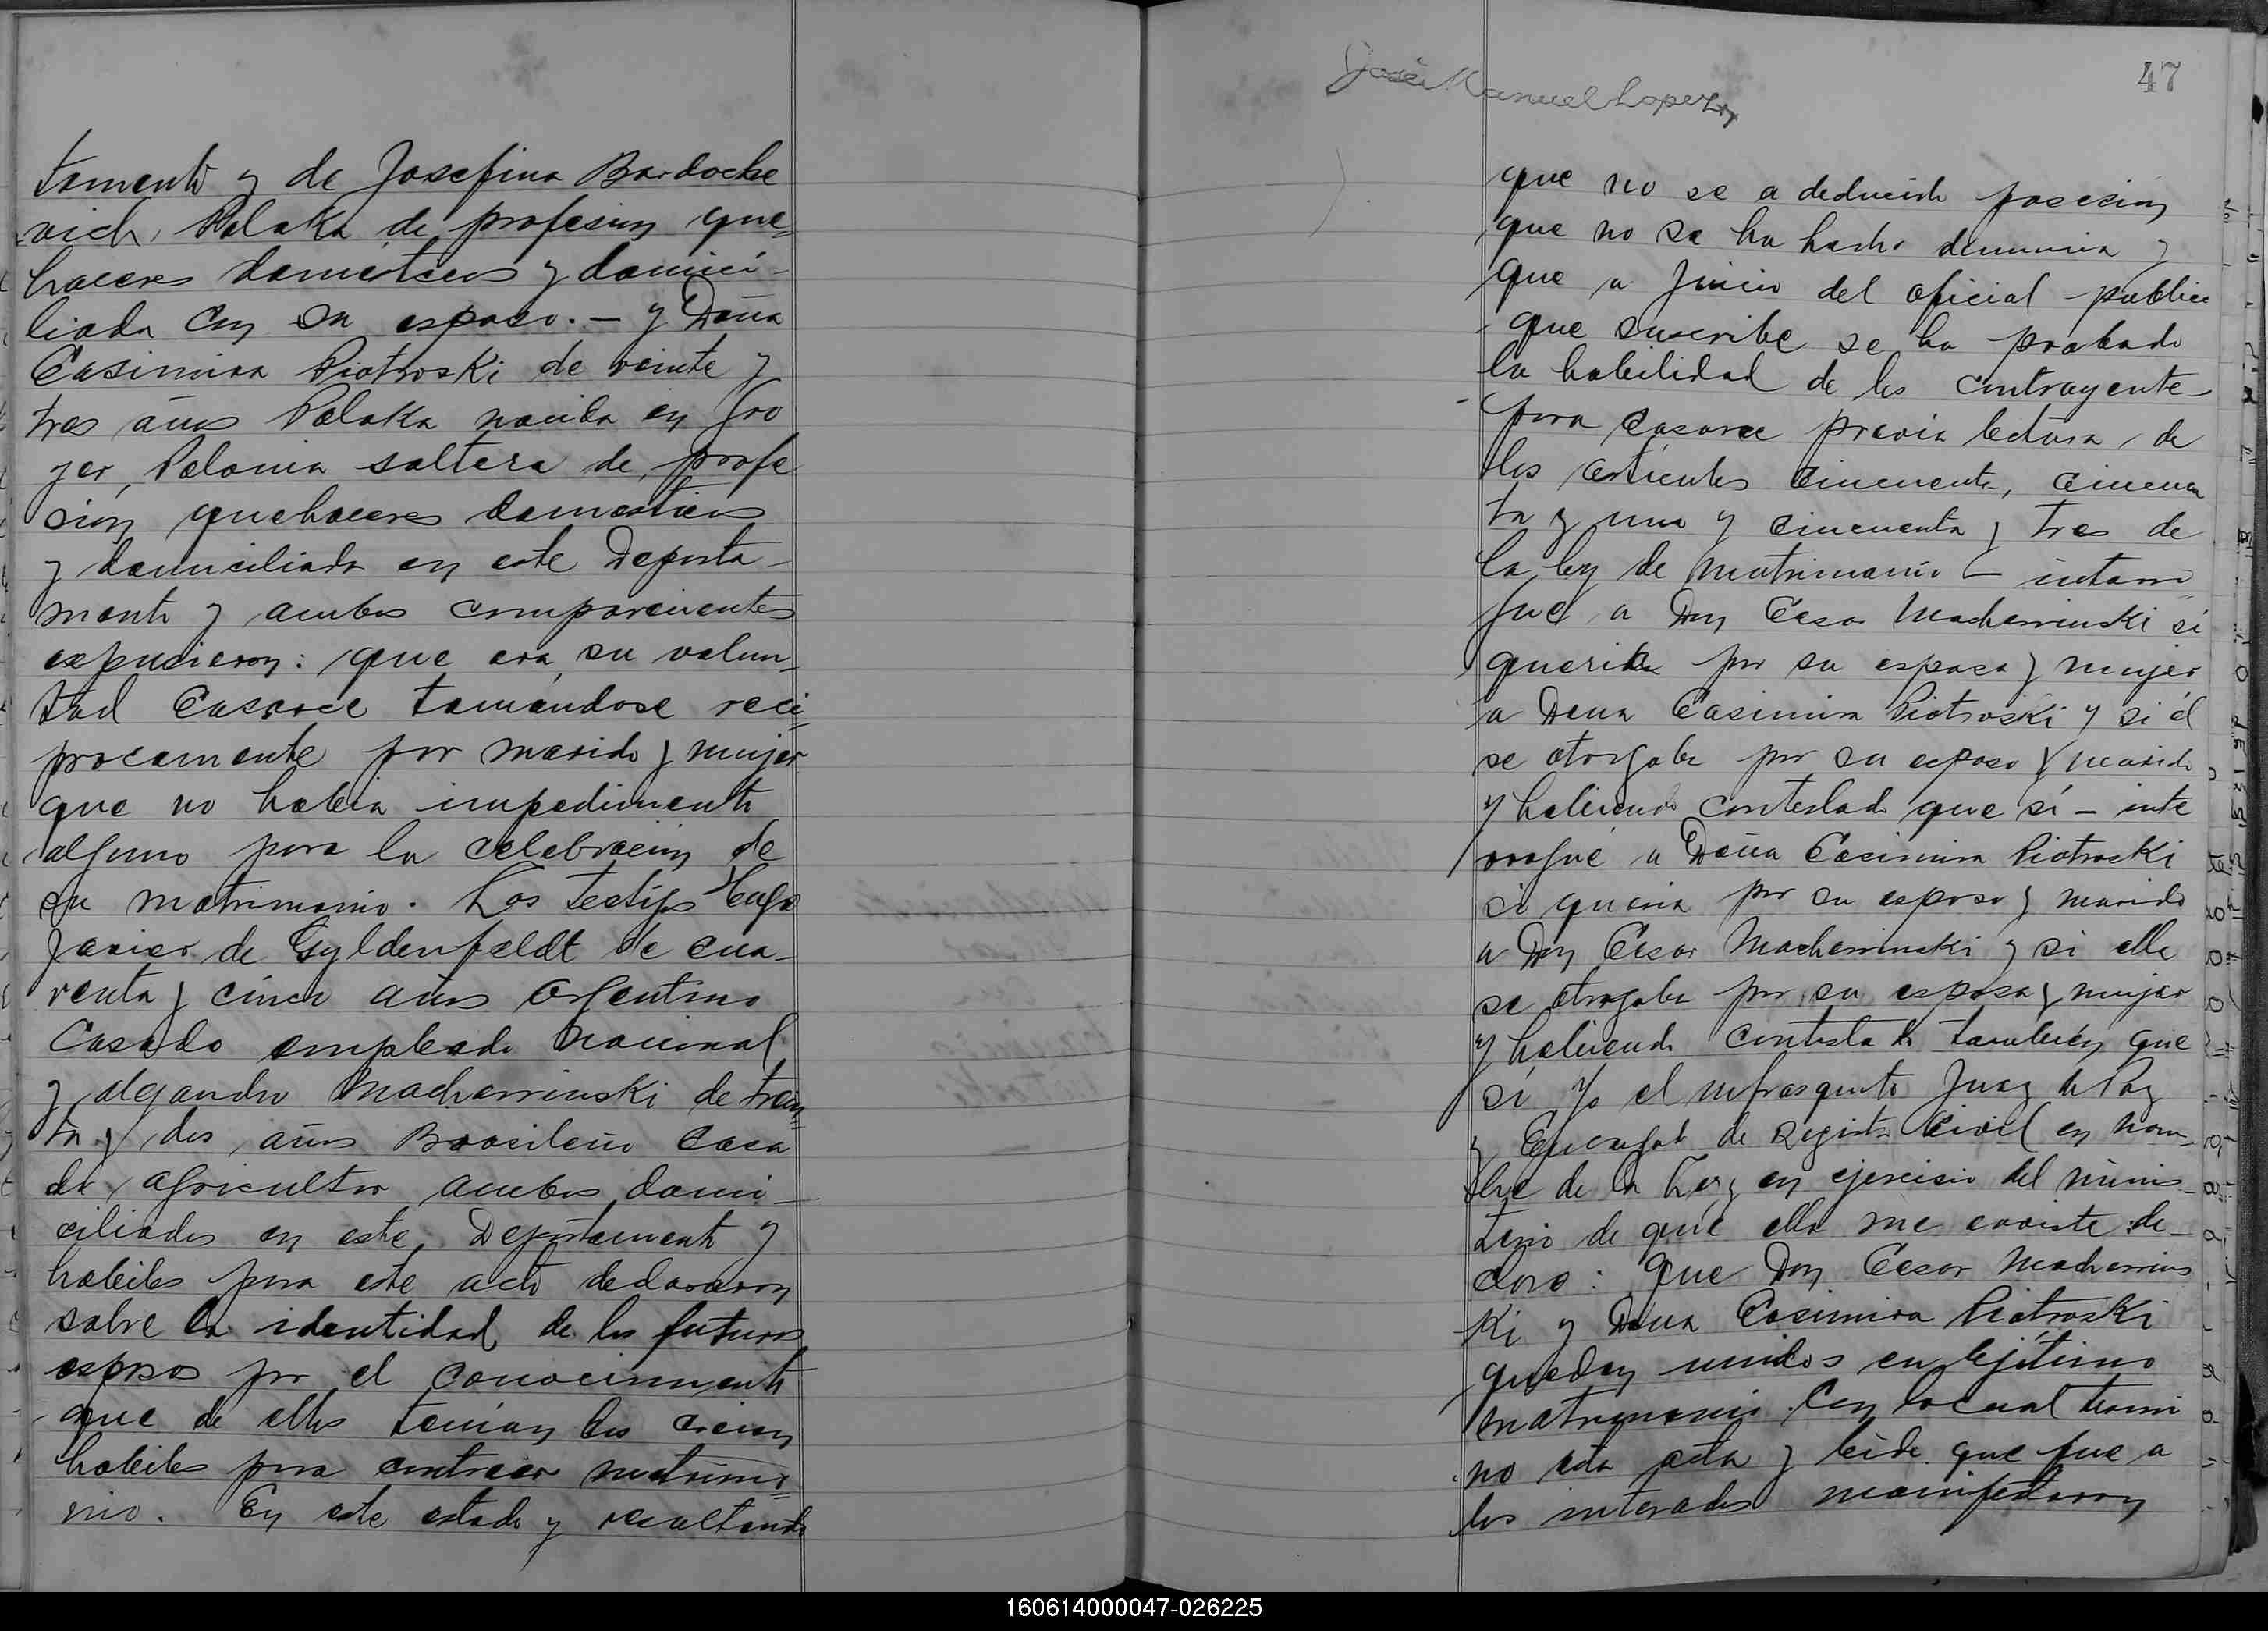 tamento y de Josefina Bardoche
vich, Polaka de profesion que=
haceres domesticos y domici-
liada con su esposo. — y Doña
Casimira Piotroski de veinte y
tres años Polaka nacida en Gro
jer, Polonia soltera de profe
sion quehaceres domesticos
y domiciliada en este Departa-
mento y ambos comparecientes
expusieron: que era su volun-
tad Casarce tomándose reci-
procamente por marido y mujer
que no habia impedimento
alguno para la celebracion de
su matrimonio. Los testigos Hugo
Javier de Gyldenfeldt de cua-
renta y cinco años Argentino
Casado empleado Nacional
y Alejandro Macherrinski de trein=
ta y dos años Brasileño Casa
do agricultor ambos domi-
ciliados en este Departamento y
habiles para este acto declararon
sobre la identidad de los futuros
esposos por el conocimiento
que de ellos tenian los creian
habiles para contraer matrimo=
nio. En este estado y resultando
José Manuel Lopez
47
que no se a deducido posecion
que no se ha hecho denuncia y
que a juicio del oficial publico
que suscribe se ha probado
la habilidad de los contrayente-
para casarce previa lectura de
los articulos cincuenta, cincuen
ta y uno y cincuenta y tres de
la ley de Matrimonio — interro
gue a Don Cesar Macherrinski si
queria por su esposa y mujer
a Doña Casimira Piotroski y si él
se otorgaba por su esposo y marido
y habiendo contestado que sí — inte
rrogué a Doña Casimira Piotroski
si queria por su esposo y marido
a Don Cesar Macherrinski y si ella
se otrogaba por su esposa y mujer
y habiendo contestado tambien que
sí Yo el infrasquito Juez de Paz
y Encargado de Registro Civil en nom-
bre de la Ley en ejercisio del minis-
terio de que ella me enviste de-
claro: Que Don Cesar Macherrins
ki y Doña Casimira Piotroski
quedan unidos en lejítimo
matrimonio. Con lo cual termi
no esta acta y leida que fue a
los interados manifestaron
160614000047-026225